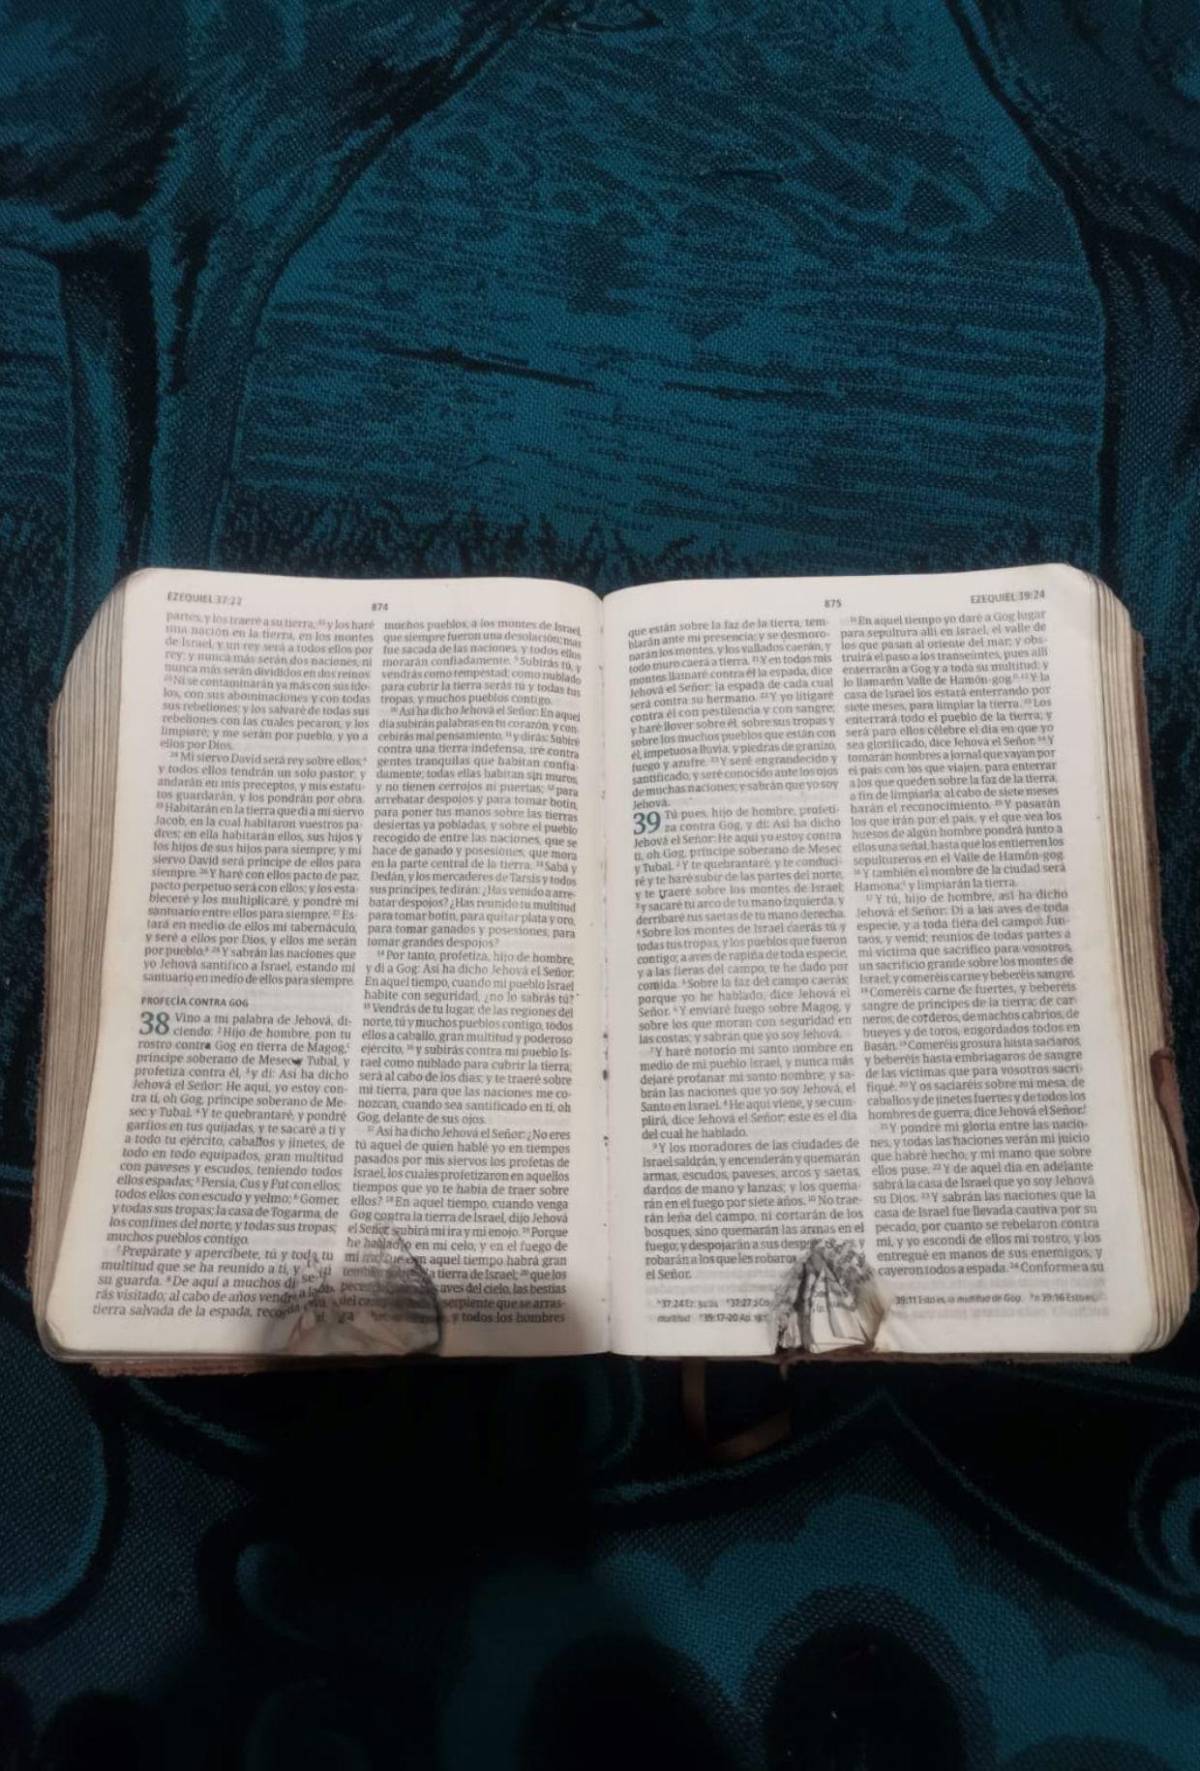 EZEQUIEL 37:22
874
partes, y los traeré a su tierra; ²² y los haré
una nación en la tierra, en los montes
de Israel, y un rey será a todos ellos por
rey; y nunca más serán dos naciones, ni
nunca más serán divididos en dos reinos.
²³ Ni se contaminarán ya más con sus ído-
los, con sus abominaciones y con todas
sus rebeliones; y los salvaré de todas sus
rebeliones con las cuales pecaron, y los
limpiaré; y me serán por pueblo, y yo a
ellos por Dios.
²⁴ Mi siervo David será rey sobre ellos,
y todos ellos tendrán un solo pastor; y
andarán en mis preceptos, y mis estatu-
tos guardarán, y los pondrán por obra.
²⁵ Habitarán en la tierra que di a mi siervo
Jacob, en la cual habitaron vuestros pa-
dres; en ella habitarán ellos, sus hijos y
los hijos de sus hijos para siempre; y mi
siervo David será príncipe de ellos para
siempre. ²⁶ Y haré con ellos pacto de paz,
pacto perpetuo será con ellos; y los esta-
bleceré y los multiplicaré, y pondré mi
santuario entre ellos para siempre. ²⁷ Es-
tará en medio de ellos mi tabernáculo,
y seré a ellos por Dios, y ellos me serán
por pueblo. ²⁸ Y sabrán las naciones que
yo Jehová santifico a Israel, estando mi
santuario en medio de ellos para siempre.
PROFECÍA CONTRA GOG
38 Vino a mí palabra de Jehová, di-
ciendo: ² Hijo de hombre, pon tu
rostro contra Gog en tierra de Magog,
príncipe soberano de Mesec y Tubal, y
profetiza contra él, ³ y di: Así ha dicho
Jehová el Señor: He aquí, yo estoy con-
tra ti, oh Gog, príncipe soberano de Me-
sec y Tubal. ⁴ Y te quebrantaré, y pondré
garfios en tus quijadas, y te sacaré a ti y
a todo tu ejército, caballos y jinetes, de
todo en todo equipados, gran multitud
con paveses y escudos, teniendo todos
ellos espadas; ⁵ Persia, Cus y Fut con ellos;
todos ellos con escudo y yelmo; ⁶ Gomer,
y todas sus tropas; la casa de Togarma, de
los confines del norte, y todas sus tropas;
muchos pueblos contigo.
⁷ Prepárate y apercíbete, tú y toda tu
multitud que se ha reunido a ti, y
su guarda. ⁸ De aquí a muchos días se-
rás visitado; al cabo de años vendrás a la
tierra salvada de la espada,
muchos pueblos, a los montes de Israel,
que siempre fueron una desolación; mas
fue sacada de las naciones, y todos ellos
morarán confiadamente. ⁹ Subirás tú, y
vendrás como tempestad; como nublado
para cubrir la tierra serás tú y todas tus
tropas, y muchos pueblos contigo.
¹⁰ Así ha dicho Jehová el Señor: En aquel
día subirán palabras en tu corazón, y con-
cebirás mal pensamiento, ¹¹ y dirás: Subiré
contra una tierra indefensa, iré contra
gentes tranquilas que habitan confia-
damente; todas ellas habitan sin muros,
y no tienen cerrojos ni puertas; ¹² para
arrebatar despojos y para tomar botín,
para poner tus manos sobre las tierras
desiertas ya pobladas, y sobre el pueblo
recogido de entre las naciones, que se
hace de ganado y posesiones, que mora
en la parte central de la tierra. ¹³ Sabá y
Dedán, y los mercaderes de Tarsis y todos
sus príncipes, te dirán: ¿Has venido a arre-
batar despojos? ¿Has reunido tu multitud
para tomar botín, para quitar plata y oro,
para tomar ganados y posesiones, para
tomar grandes despojos?
¹⁴ Por tanto, profetiza, hijo de hombre,
y di a Gog: Así ha dicho Jehová el Señor:
En aquel tiempo, cuando mi pueblo Israel
habite con seguridad, ¿no lo sabrás tú?
¹⁵ Vendrás de tu lugar, de las regiones del
norte, tú y muchos pueblos contigo, todos
ellos a caballo, gran multitud y poderoso
ejército, ¹⁶ y subirás contra mi pueblo Is-
rael como nublado para cubrir la tierra;
será al cabo de los días; y te traeré sobre
mi tierra, para que las naciones me co-
nozcan, cuando sea santificado en ti, oh
Gog, delante de sus ojos.
¹⁷ Así ha dicho Jehová el Señor: ¿No eres
tú aquel de quien hablé yo en tiempos
pasados por mis siervos los profetas de
Israel, los cuales profetizaron en aquellos
tiempos que yo te había de traer sobre
ellos? ¹⁸ En aquel tiempo, cuando venga
Gog contra la tierra de Israel, dijo Jehová
el Señor, subirá mi ira y mi enojo. ¹⁹ Porque
he hablado en mi celo, y en el fuego de
mi ira: Que en aquel tiempo habrá gran
la tierra de Israel; ²⁰ que los
aves del cielo, las bestias
serpiente que se arras-
y todos los hombres
875
EZEQUIEL 39:24
que están sobre la faz de la tierra, tem-
blarán ante mi presencia; y se desmoro-
narán los montes, y los vallados caerán, y
todo muro caerá a tierra. ²¹ Y en todos mis
montes llamaré contra él la espada, dice
Jehová el Señor; la espada de cada cual
será contra su hermano. ²² Y yo litigaré
contra él con pestilencia y con sangre;
y haré llover sobre él, sobre sus tropas y
sobre los muchos pueblos que están con
él, impetuosa lluvia, y piedras de granizo,
fuego y azufre. ²³ Y seré engrandecido y
santificado, y seré conocido ante los ojos
de muchas naciones; y sabrán que yo soy
Jehová.
39 Tú pues, hijo de hombre, profeti-
za contra Gog, y di: Así ha dicho
Jehová el Señor: He aquí yo estoy contra
ti, oh Gog, príncipe soberano de Mesec
y Tubal. ² Y te quebrantaré, y te conduci-
ré y te haré subir de las partes del norte,
y te traeré sobre los montes de Israel;
³ y sacaré tu arco de tu mano izquierda, y
derribaré tus saetas de tu mano derecha.
⁴ Sobre los montes de Israel caerás tú y
todas tus tropas, y los pueblos que fueron
contigo; a aves de rapiña de toda especie,
y a las fieras del campo, te he dado por
comida. ⁵ Sobre la faz del campo caerás;
porque yo he hablado, dice Jehová el
Señor. ⁶ Y enviaré fuego sobre Magog, y
sobre los que moran con seguridad en
las costas; y sabrán que yo soy Jehová.
⁷ Y haré notorio mi santo nombre en
medio de mi pueblo Israel, y nunca más
dejaré profanar mi santo nombre; y sa-
brán las naciones que yo soy Jehová, el
Santo en Israel. ⁸ He aquí viene, y se cum-
plirá, dice Jehová el Señor; este es el día
del cual he hablado.
⁹ Y los moradores de las ciudades de
Israel saldrán, y encenderán y quemarán
armas, escudos, paveses, arcos y saetas,
dardos de mano y lanzas; y los quema-
rán en el fuego por siete años. ¹⁰ No trae-
rán leña del campo, ni cortarán de los
bosques, sino quemarán las armas en el
fuego; y despojarán a sus despojadores, y
robarán a los que les robaron,
el Señor.
¹¹ En aquel tiempo yo daré a Gog lugar
para sepultura allí en Israel, el valle de
los que pasan al oriente del mar; y obs-
truirá el paso a los transeúntes, pues allí
enterrarán a Gog y a toda su multitud; y
lo llamarán Valle de Hamón-gog. ¹² Y la
casa de Israel los estará enterrando por
siete meses, para limpiar la tierra. ¹³ Los
enterrará todo el pueblo de la tierra; y
será para ellos célebre el día en que yo
sea glorificado, dice Jehová el Señor. ¹⁴ Y
tomarán hombres a jornal que vayan por
el país con los que viajen, para enterrar
a los que queden sobre la faz de la tierra,
a fin de limpiarla; al cabo de siete meses
harán el reconocimiento. ¹⁵ Y pasarán
los que irán por el país, y el que vea los
huesos de algún hombre pondrá junto a
ellos una señal, hasta que los entierren los
sepultureros en el Valle de Hamón-gog.
¹⁶ Y también el nombre de la ciudad será
Hamona; y limpiarán la tierra.
¹⁷ Y tú, hijo de hombre, así ha dicho
Jehová el Señor: Di a las aves de toda
especie, y a toda fiera del campo: Jun-
taos, y venid; reuníos de todas partes a
mi víctima que sacrifico para vosotros,
un sacrificio grande sobre los montes de
Israel; y comeréis carne y beberéis sangre.
¹⁸ Comeréis carne de fuertes, y beberéis
sangre de príncipes de la tierra; de car-
neros, de corderos, de machos cabríos, de
bueyes y de toros, engordados todos en
Basán. ¹⁹ Comeréis grosura hasta saciaros,
y beberéis hasta embriagaros de sangre
de las víctimas que para vosotros sacri-
fiqué. ²⁰ Y os saciaréis sobre mi mesa, de
caballos y de jinetes fuertes y de todos los
hombres de guerra, dice Jehová el Señor.
²¹ Y pondré mi gloria entre las nacio-
nes, y todas las naciones verán mi juicio
que habré hecho, y mi mano que sobre
ellos puse. ²² Y de aquel día en adelante
sabrá la casa de Israel que yo soy Jehová
su Dios. ²³ Y sabrán las naciones que la
casa de Israel fue llevada cautiva por su
pecado, por cuanto se rebelaron contra
mí, y yo escondí de ellos mi rostro, y los
entregué en manos de sus enemigos, y
cayeron todos a espada. ²⁴ Conforme a su
37:24 Ez. 37:27 2 Co.
multitud 39:17-20 Ap.
39:11 Esto es, la multitud de Gog. 39:16 Esto es,